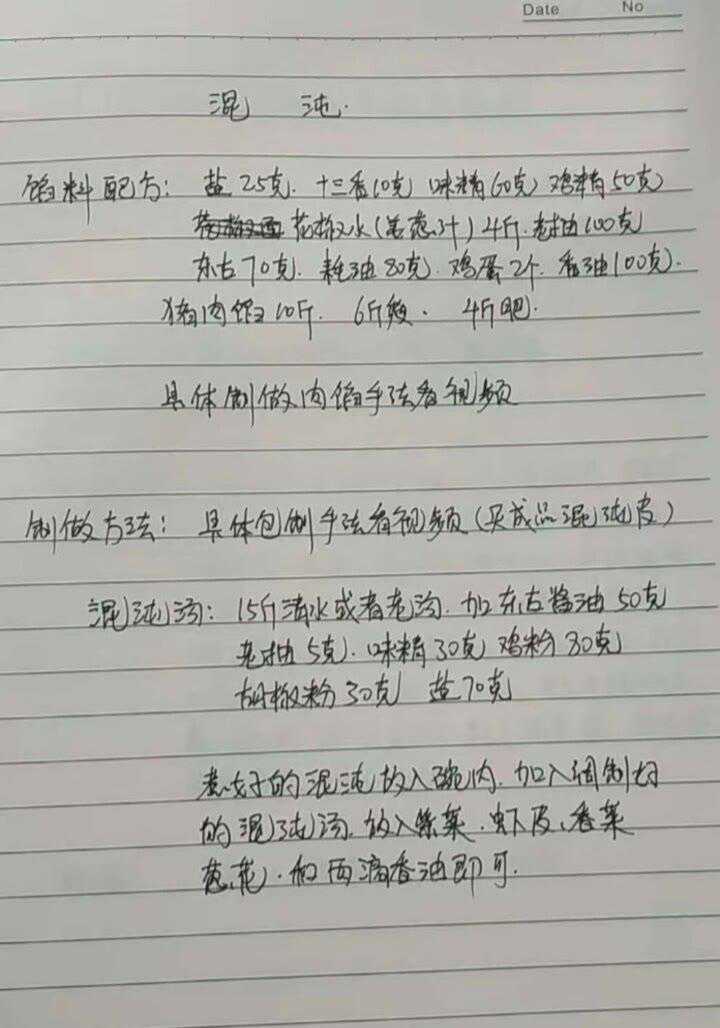 Date No
混 沌.
馅料配方: 盐25克. 十三香10克 味精60克 鸡精50克
花椒水(姜葱汁)4斤. 老抽100克
东古70克. 耗油80克. 鸡蛋2个. 香油100克.
猪肉馅10斤. 6斤瘦. 4斤肥.
具体制做肉馅手法看视频
制做方法: 具体包制手法看视频(买成品混沌皮)
混沌汤: 15斤清水或者老汤. 加东古酱油50克
老抽5克. 味精30克 鸡粉80克
胡椒粉30克 盐70克
煮好的混沌放入碗内. 加入调制好
的混沌汤. 放入紫菜. 虾皮、香菜
葱花. 和两滴香油即可.